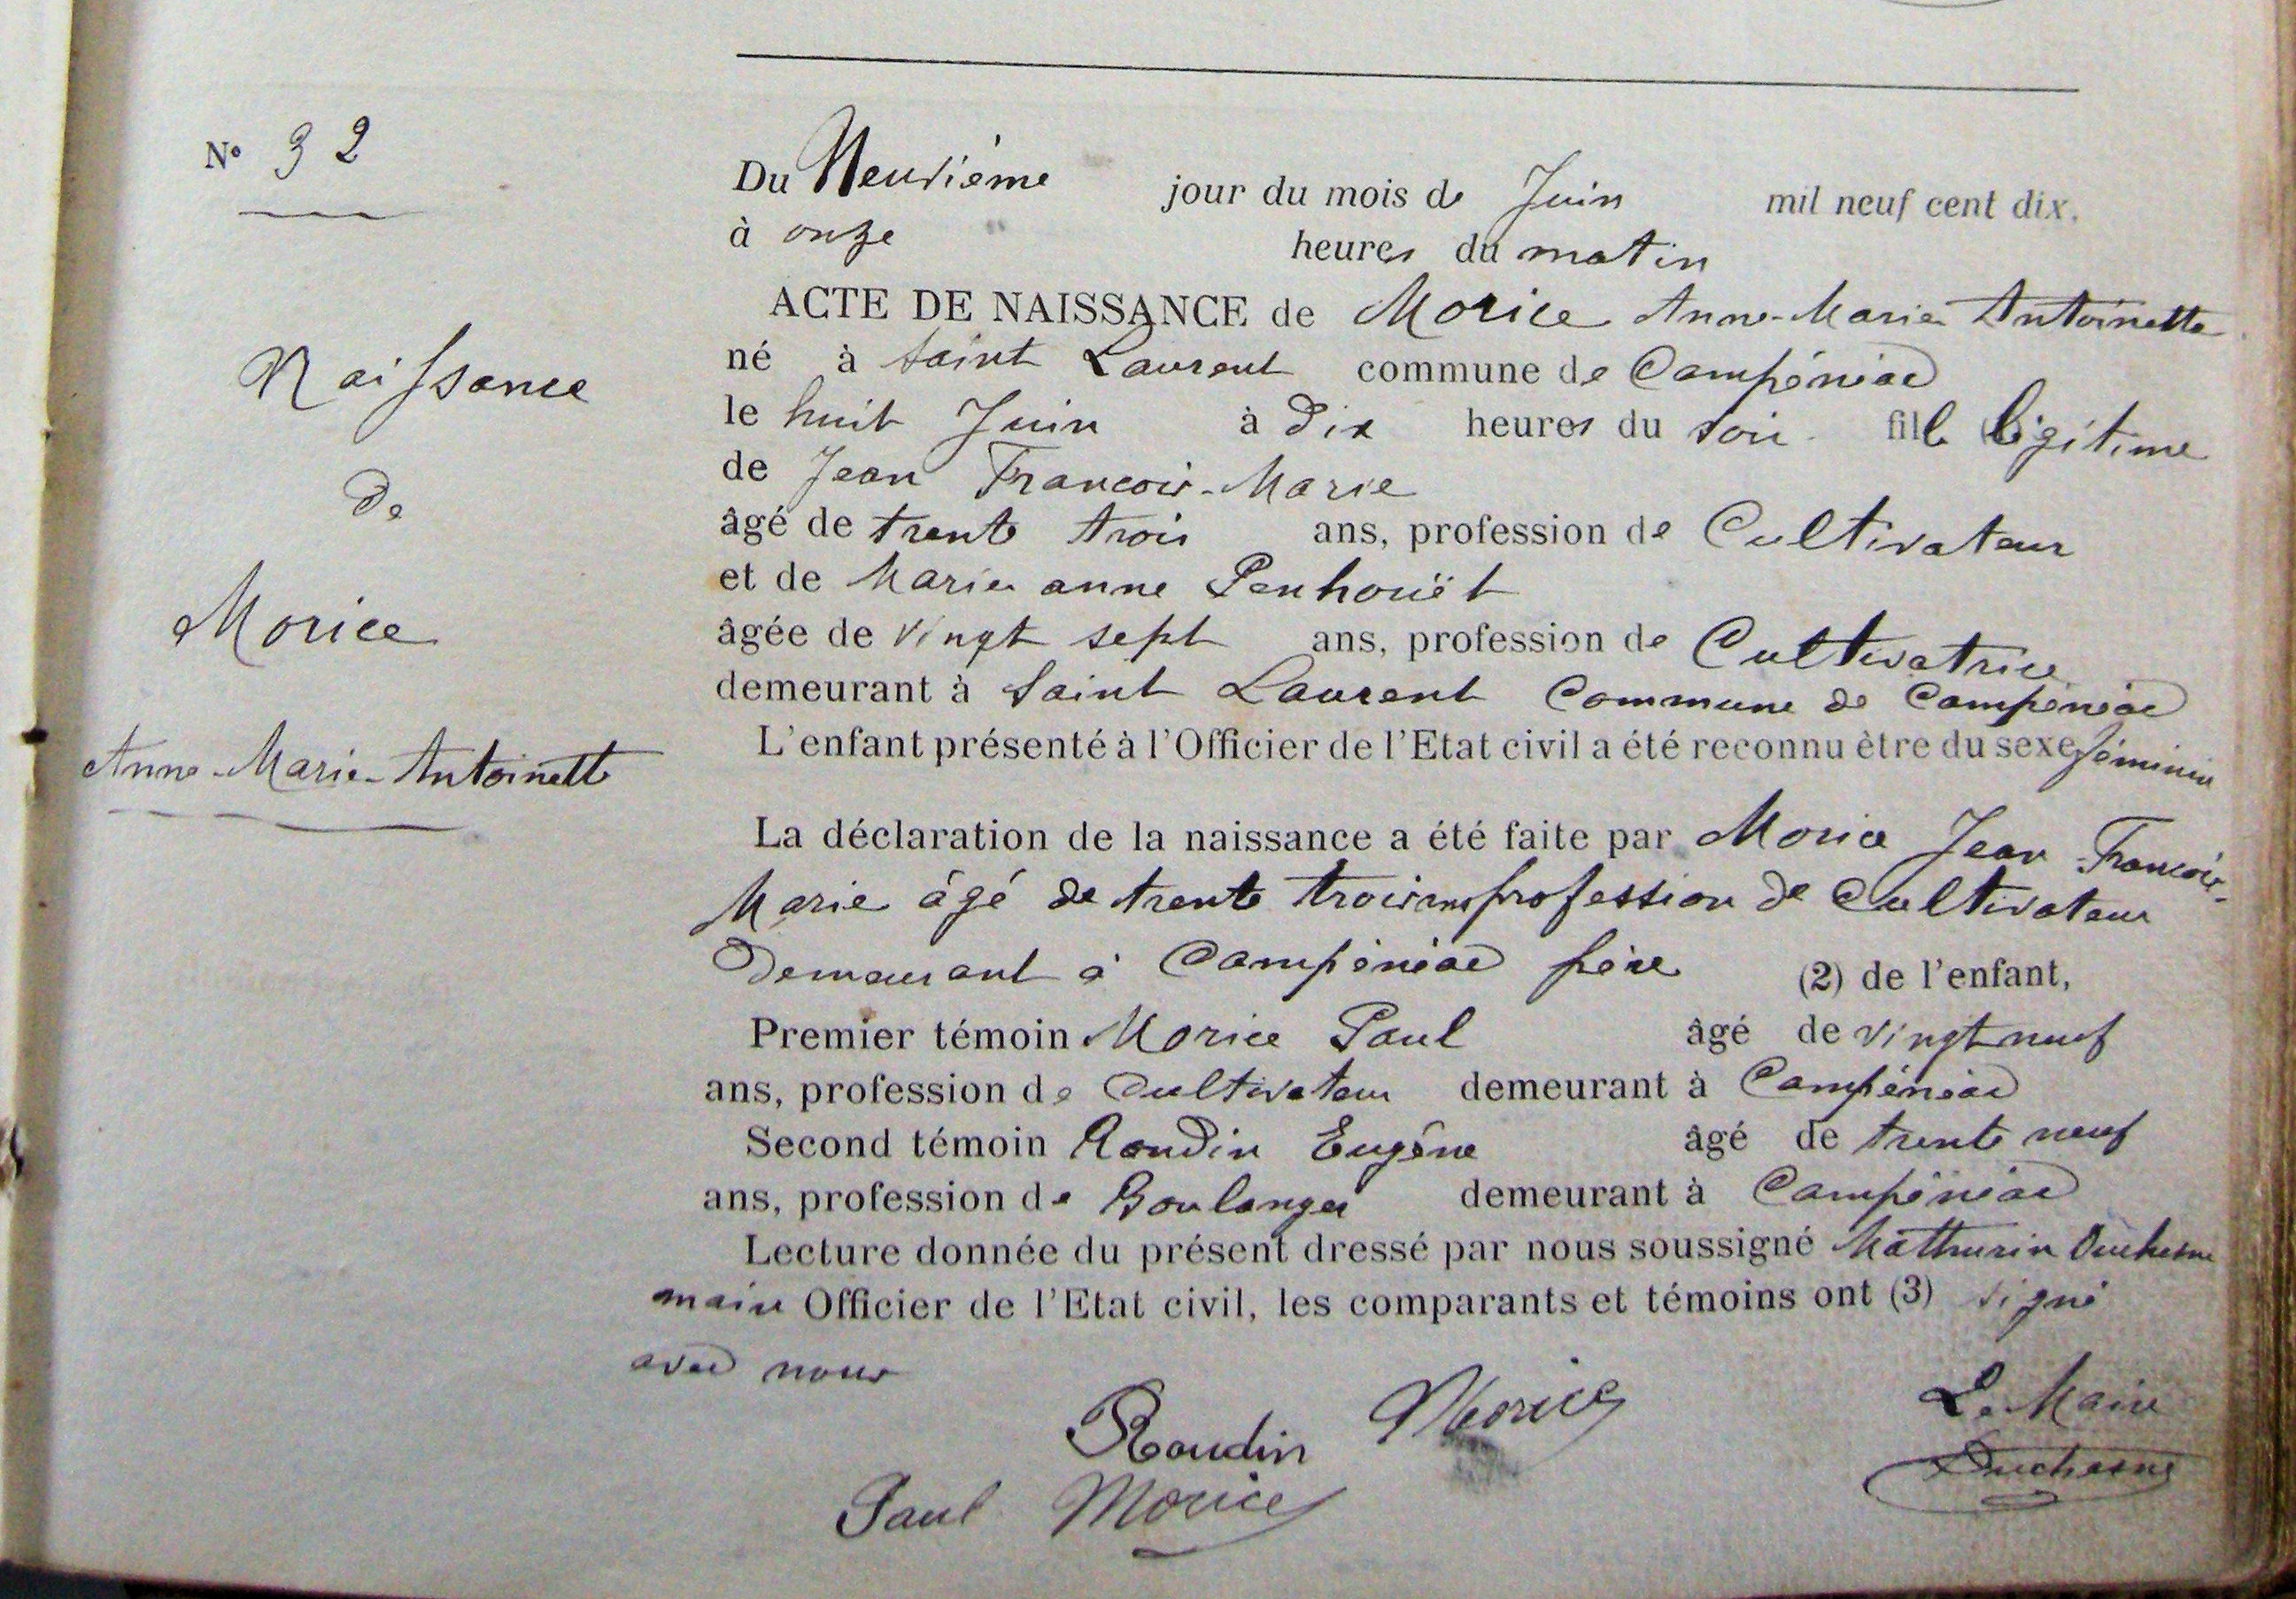 N° 32
Naissance
de
Morice
Anne-Marie-Antoinette
Du Neuvième jour du mois de Juin mil neuf cent dix,
à onze heures du matin
ACTE DE NAISSANCE de Morice Anne-Marie Antoinette
né à Saint Laurent commune de Campénéac
le huit Juin à dix heures du soir fille légitime
de Jean François-Marie
âgé de trente trois ans, profession de Cultivateur
et de Marie anne Penhouët
âgée de vingt sept ans, profession de Cultivatrice
demeurant à Saint Laurent Commune de Campénéac
L'enfant présenté à l'Officier de l'Etat civil a été reconnu être du sexe féminin
La déclaration de la naissance a été faite par Morice Jean François-
Marie âgé de trente trois ans profession de Cultivateur
Demeurant à Campénéac père (2) de l'enfant,
Premier témoin Morice Paul âgé de vingt neuf
ans, profession de Cultivateur demeurant à Campénéac
Second témoin Raudin Eugène âgé de trente neuf
ans, profession de Boulanger demeurant à Campénéac
Lecture donnée du présent dressé par nous soussigné Mathurin Duchesne
maire Officier de l'Etat civil, les comparants et témoins ont (3) signé
avec nous
Raudin Morice Le Maire
Paul Morice Duchesne